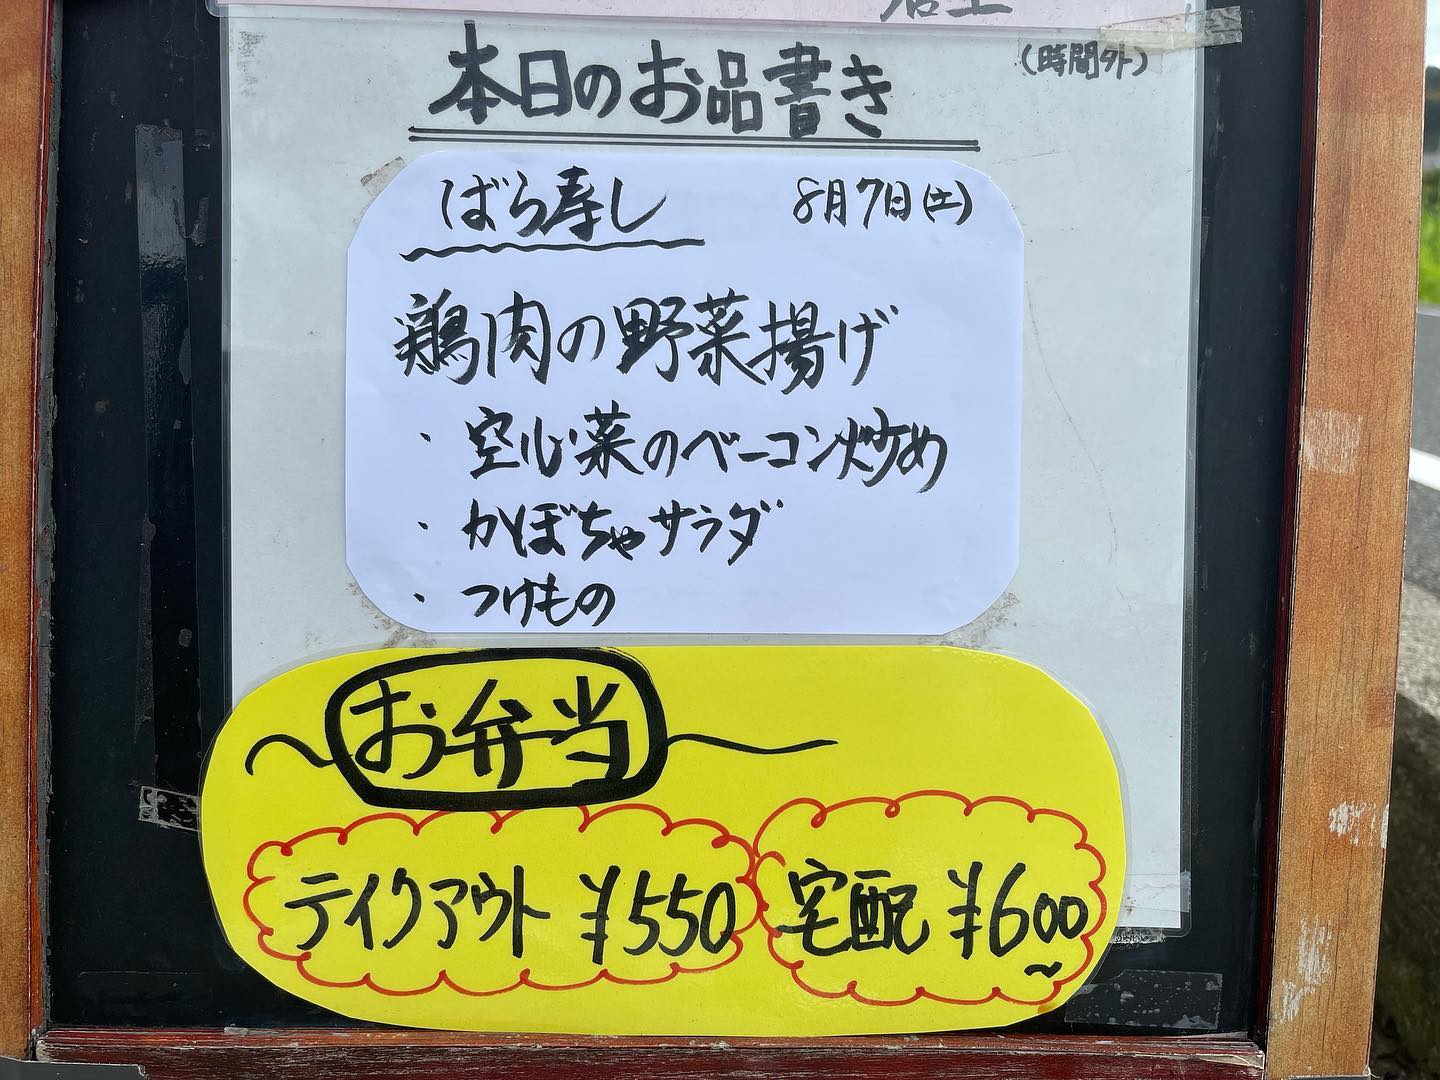 (時間外)
本日のお品書き
ばら寿し 8月7日(土)
鶏肉の野菜揚げ
・空心菜のベーコン炒め
・かぼちゃサラダ
・つけもの
お弁当
テイクアウト ¥550 宅配 ¥600~